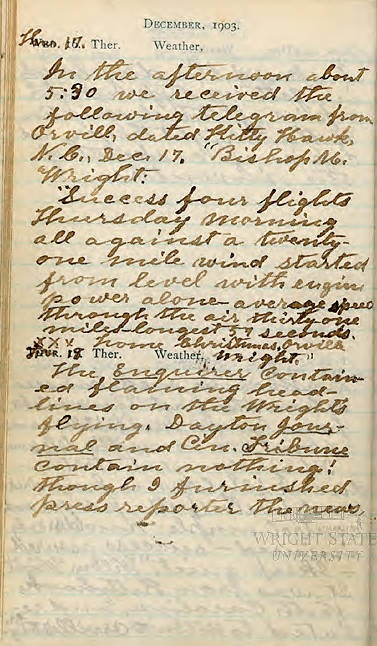 DECEMBER, 1903.
Thu. 17. Ther. Weather,
In the afternoon about
5:30 we received the
following telegram from
Orville, dated Kitty Hawk,
N.C., Dec. 17. "Bishop M.
Wright:
"Success four flights
Thursday morning
all against a twenty-
one mile wind started
from level with engine
power alone average speed
through the air thirty-one
miles longest 57 seconds.
XXX home Christmas. Orville
Fri. 18. Ther. Weather, Wright."
The Enquirer contain-
ed flaming head-
lines on the Wrights
flying. Dayton Jour-
nal and Cin. Tribune
contain nothing!
though I furnished
press reporter the news.
WRIGHT STATE
UNIVERSITY